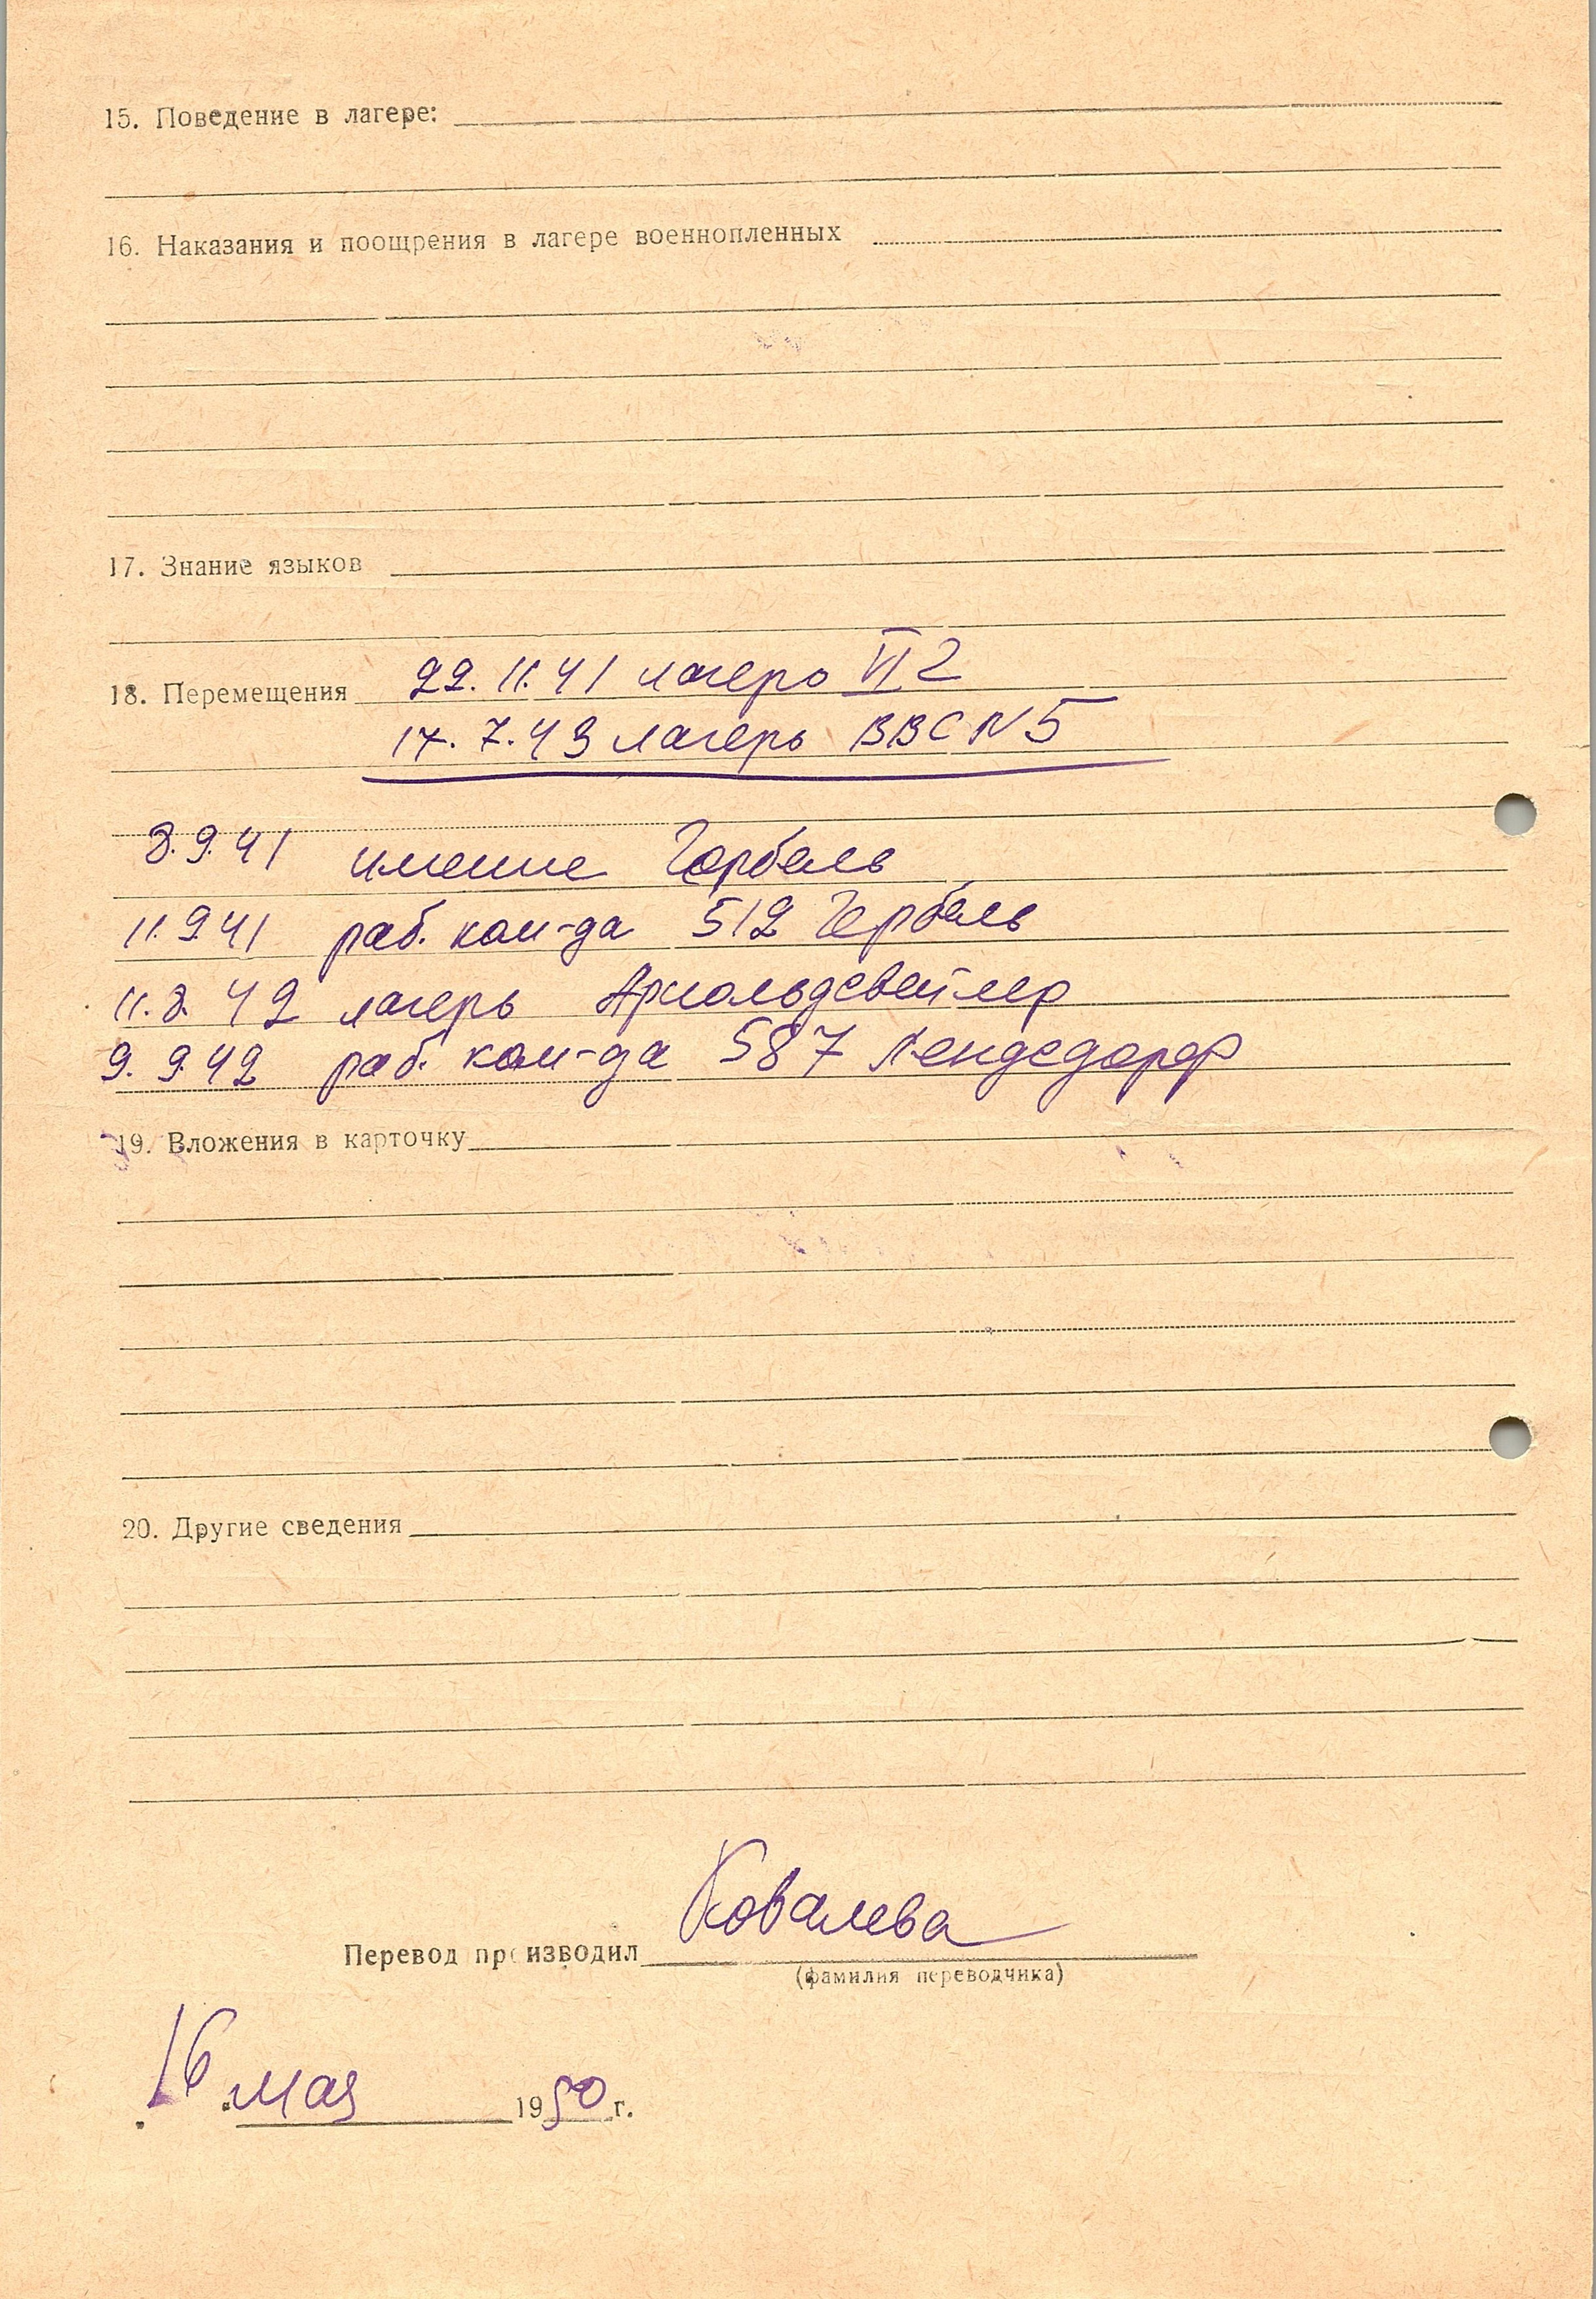 15. Поведение в лагере:
16. Наказания и поощрения в лагере военнопленных
17. Знание языков
18. Перемещения 22.11.41 лагерь VI 2
17.7.43 лагерь ВВС N 5
8.9.41 имение Горбель
11.9.41 раб. ком-да 512 Гербель
11.8.42 лагерь Арнольдсвейлер
9.9.42 раб. ком-да 587 Кендедорф
19. Вложения в карточку
20. Другие сведения
Перевод производил Ковалева
(фамилия переводчика)
16 мая 1950 г.